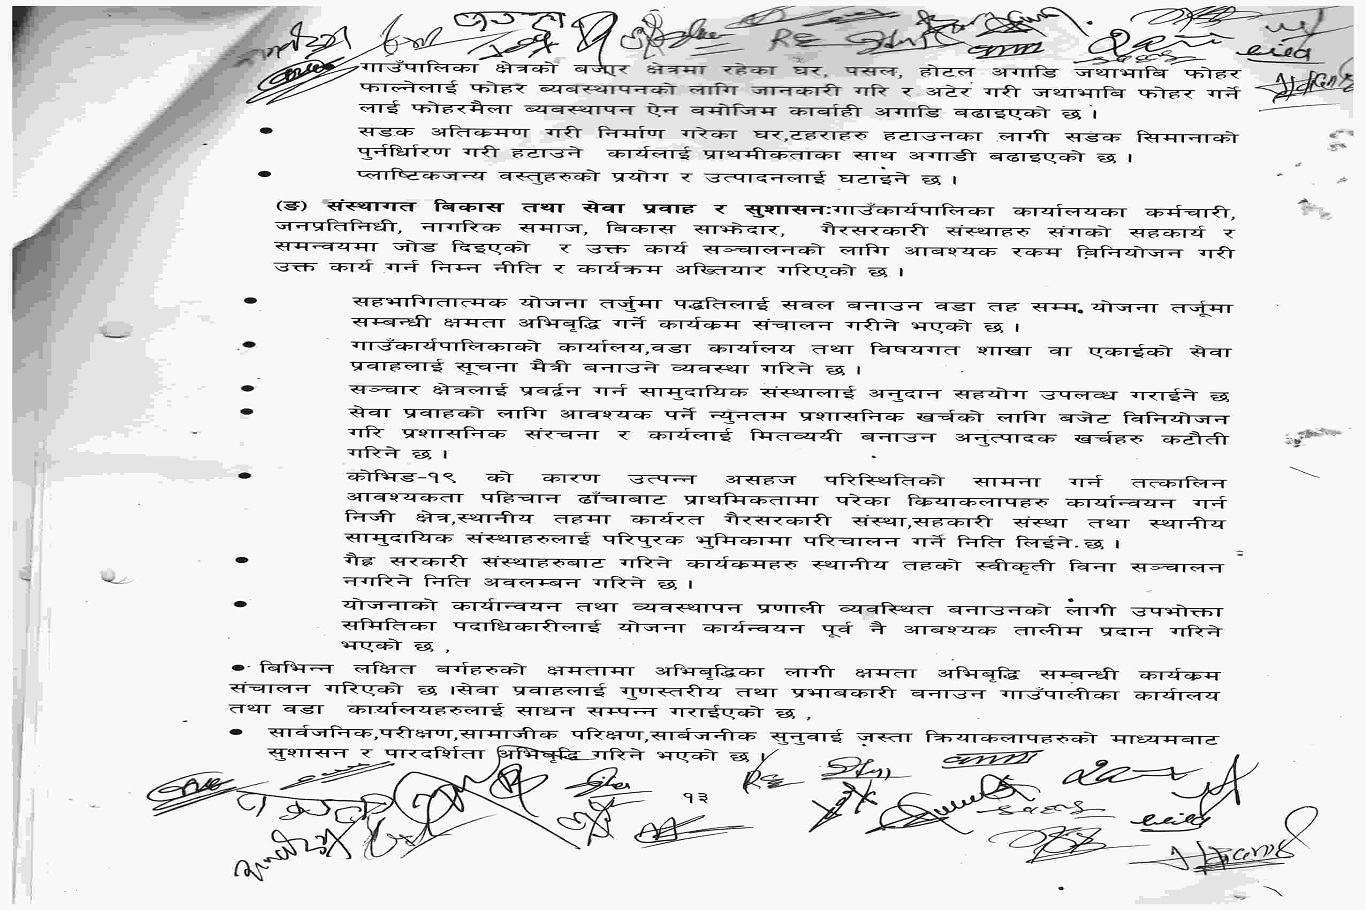 गाउँपालिका क्षेत्रको बजार क्षेत्रमा रहेका घर, पसल, होटल अगाडि जथाभावि फोहर
फाल्नेलाई फोहर ब्यबस्थापनको लागि जानकारी गरि र अटेर गरी जथाभावि फोहर गर्ने
लाई फोहरमैला ब्यवस्थापन ऐन वमोजिम कार्बाही अगाडि बढाइएको छ ।
● सडक अतिक्रमण गरी निर्माण गरेका घर,टहराहरु हटाउनका लागी सडक सिमानाको
पुर्नर्धिारण गरी हटाउने कार्यलाई प्राथमीकताका साथ अगाडी बढाइएको छ ।
● प्लाष्टिकजन्य वस्तुहरुको प्रयोग र उत्पादनलाई घटाइने छ ।
(ङ) संस्थागत बिकास तथा सेवा प्रवाह र सुशासन:गाउँकार्यपालिका कार्यालयका कर्मचारी,
जनप्रतिनिधी, नागरिक समाज, बिकास साझेदार, गैरसरकारी संस्थाहरु संगको सहकार्य र
समन्वयमा जोड दिइएको र उक्त कार्य सञ्चालनको लागि आबश्यक रकम बिनियोजन गरी
उक्त कार्य गर्न निम्न नीति र कार्यक्रम अख्तियार गरिएको छ ।
● सहभागितात्मक योजना तर्जुमा पद्धतिलाई सवल बनाउन वडा तह सम्म योजना तर्जूमा
सम्बन्धी क्षमता अभिबृद्धि गर्ने कार्यक्रम संचालन गरीने भएको छ ।
● गाउँकार्यपालिकाको कार्यालय,वडा कार्यालय तथा विषयगत शाखा वा एकाईको सेवा
प्रवाहलाई सूचना मैत्री बनाउने व्यवस्था गरिने छ ।
● सञ्चार क्षेत्रलाई प्रवर्द्वन गर्न सामुदायिक संस्थालाई अनुदान सहयोग उपलव्ध गराईने छ
● सेवा प्रवाहको लागि आवश्यक पर्ने न्युनतम प्रशासनिक खर्चको लागि बजेट विनियोजन
गरि प्रशासनिक संरचना र कार्यलाई मितव्ययी बनाउन अनुत्पादक खर्चहरु कटौती
गरिने छ ।
● कोभिड-१९ को कारण उत्पन्न असहज परिस्थितिको सामना गर्न तत्कालिन
आवश्यकता पहिचान ढाँचाबाट प्राथमिकतामा परेका क्रियाकलापहरु कार्यान्वयन गर्न
निजी क्षेत्र,स्थानीय तहमा कार्यरत गैरसरकारी संस्था,सहकारी संस्था तथा स्थानीय
सामुदायिक संस्थाहरुलाई परिपुरक भुमिकामा परिचालन गर्ने निति लिईने छ ।
● गैह्र सरकारी संस्थाहरुबाट गरिने कार्यक्रमहरु स्थानीय तहको स्वीकृती विना सञ्चालन
नगरिने निति अवलम्बन गरिने छ ।
● योजनाको कार्यान्वयन तथा व्यवस्थापन प्रणाली व्यवस्थित बनाउनको लागी उपभोक्ता
समितिका पदाधिकारीलाई योजना कार्यन्वयन पूर्व नै आबश्यक तालीम प्रदान गरिने
भएको छ ,
● बिभिन्न लक्षित बर्गहरुको क्षमतामा अभिबृद्धिका लागी क्षमता अभिबृद्धि सम्बन्धी कार्यक्रम
संचालन गरिएको छ ।सेवा प्रवाहलाई गुणस्तरीय तथा प्रभाबकारी बनाउन गाउँपालीका कार्यालय
तथा वडा कार्यालयहरुलाई साधन सम्पन्न गराईएको छ ,
● सार्वजनिक,परीक्षण,सामाजीक परिक्षण,सार्बजनीक सुनुवाई जस्ता क्रियाकलापहरुको माध्यमबाट
सुशासन र पारदर्शिता अभिबृद्धि गरिने भएको छ ।
१३